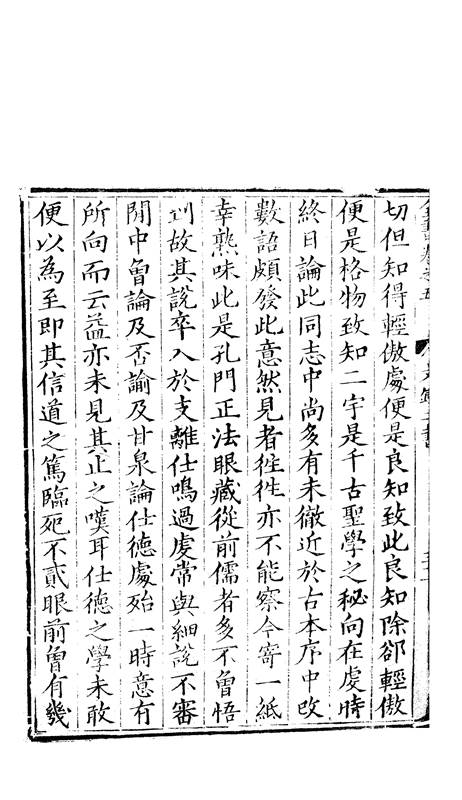 切但知得輕傲處便是良知致此良知除卻輕傲
便是格物致知二字是千古聖學之秘向在虔時
終日論此同志中尚多有未徹近於古本序中改
數語頗發此意然見者徃徃亦不能察今寄一紙
幸熟味此是孔門正法眼藏從前儒者多不曾悟
到故其說卒入於支離仕鳴過虔常與細說不審
閒中曾論及否諭及甘泉論仕德處殆一時意有
所向而云益亦未見其止之嘆耳仕德之學未敢
便以為至即其信道之篤臨死不貳眼前曾有幾